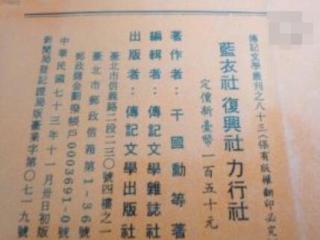 傳記文學叢刊之八十三(保有版權翻印必究)
藍衣社 復興社 力行社
定價新臺幣一百五十元
著作者：干國勳等著
編輯者：傳記文學雜誌社
出版者：傳記文學出版社
臺北市信義路二段二三〇號四樓之一
臺北市郵政信箱第1-36
郵政儲金劃撥帳戶0003691-0號
中華民國七十三年十一月卅日初版
新聞局登記證局版臺業字第〇七一九號